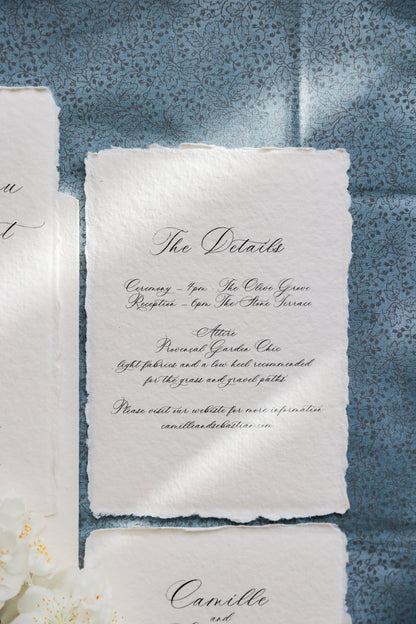 u
t
The Details
Ceremony – 4pm The Olive Grove
Reception – 6pm The Stone Terrace
Attire
Provençal Garden Chic
light fabrics and a low heel recommended
for the grass and gravel paths
Please visit our website for more information
camilleandsebastian.com
Camille
and